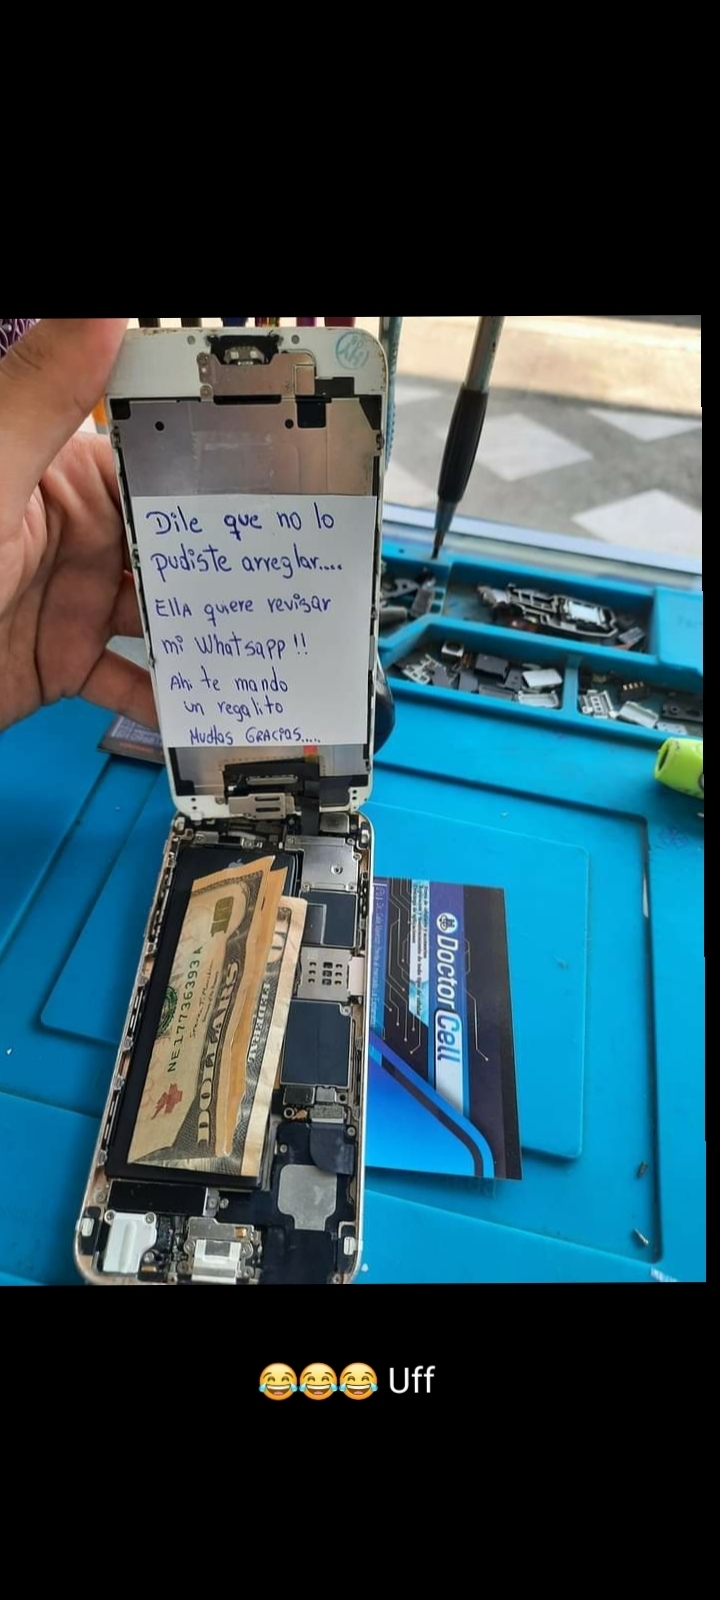 Dile que no lo
pudiste arreglar....
Ella quiere revisar
mi Whatsapp!!
Ahi te mando
un regalito
Muchas Gracias....
NE17736393A
DOLLARS
Doctor Cell
😂😂😂 Uff